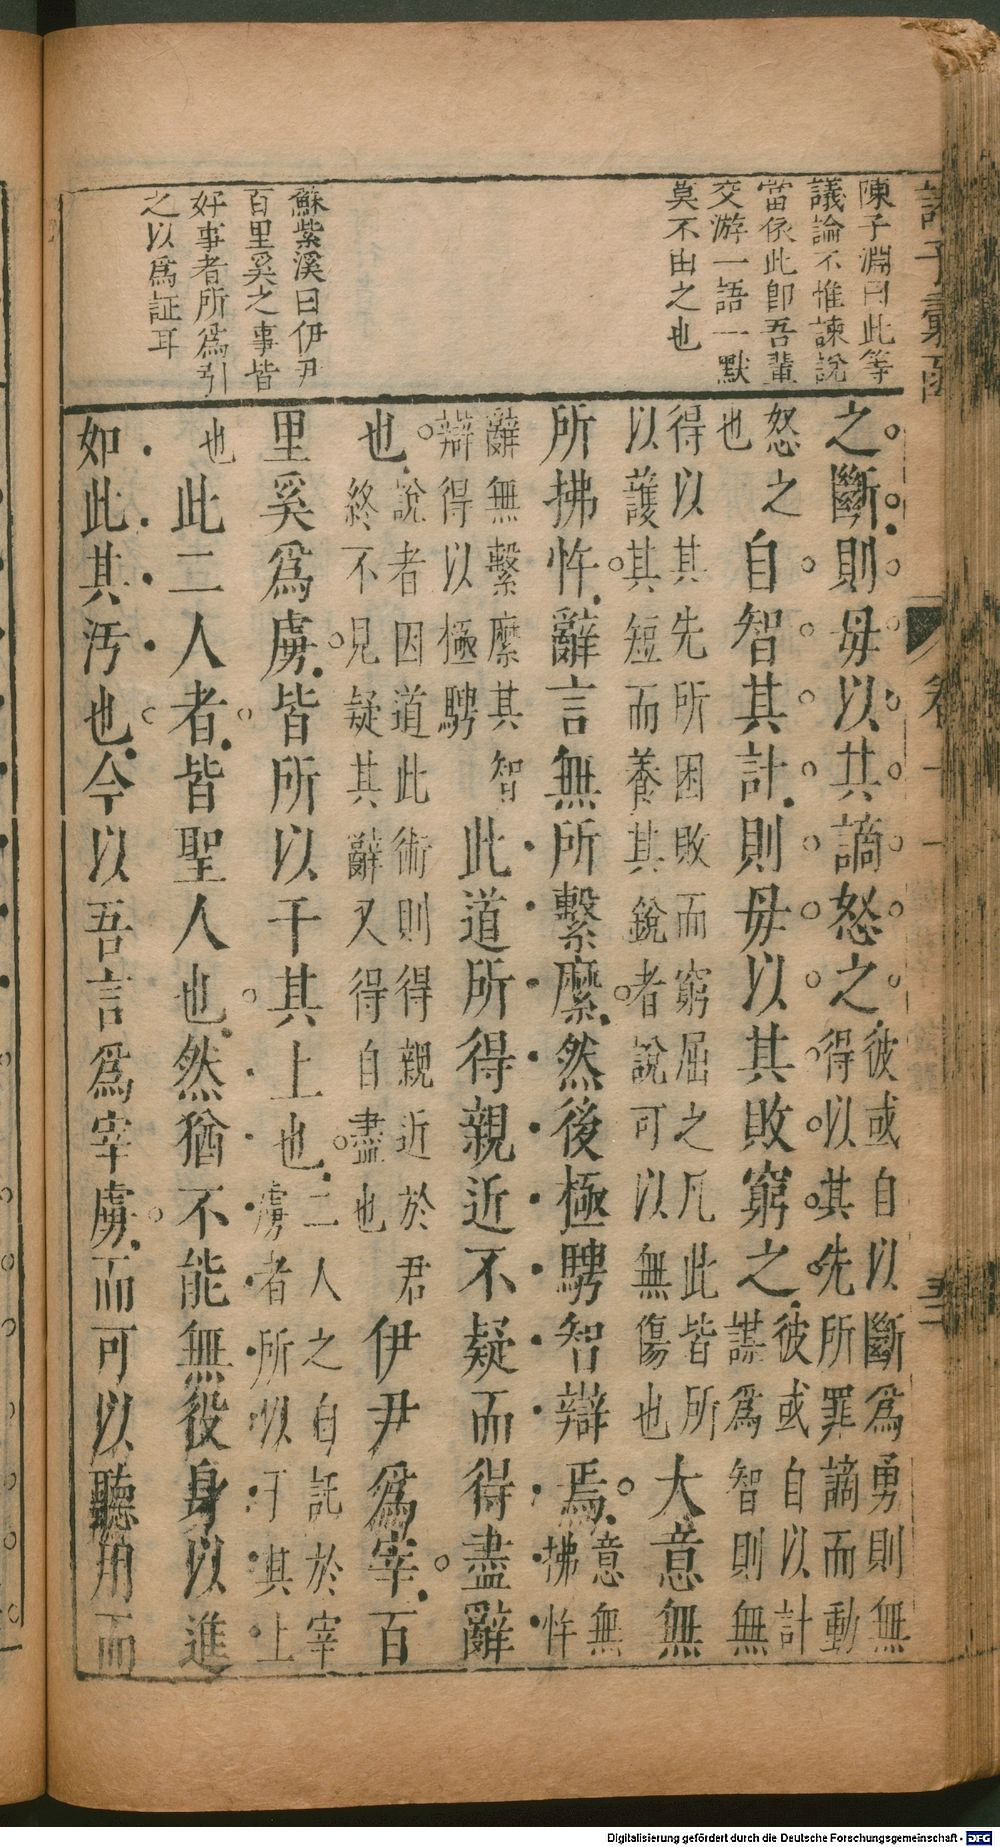 諸子彙函
陳子淵曰此等
議論不惟諫說
當依此即吾輩
交游一語一默
莫不由之也
蘇紫溪曰伊尹
百里奚之事皆
好事者所爲引
之以爲証耳
之斷則毋以其謫怒之彼或自以斷爲勇則無得以其先所罪謫而動
怒之也自智其計則毋以其敗窮之彼或自以計謀爲智則無
得以其先所困敗而窮屈之凡此皆所以護其短而養其銳者說可以無傷也大意無
所拂忤辭言無所繫縻然後極騁智辯焉意無拂忤
辭無繫縻其智辯得以極騁此道所得親近不疑而得盡辭
也說者因道此術則得親近於君終不見疑其辭又得自盡也伊尹爲宰百
里奚爲虜皆所以干其上也二人之自託於宰虜者所以干其上
也此二人者皆聖人也然猶不能無役身以進
如此其汚也今以吾言爲宰虜而可以聽用而
Digitalisierung gefördert durch die Deutsche Forschungsgemeinschaft - DFG